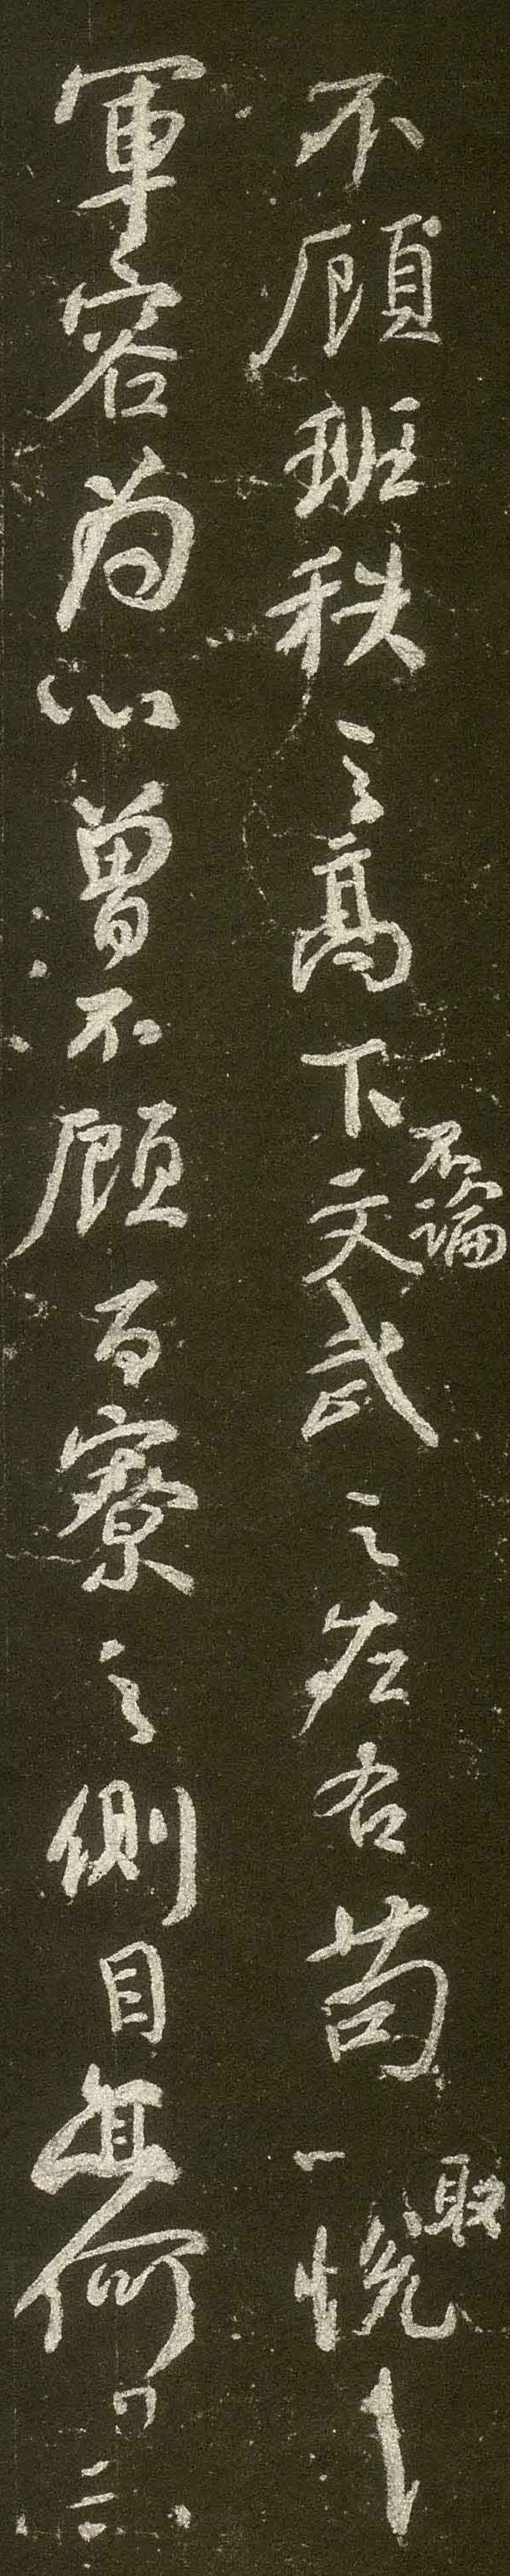 不顧班秩之高下不論文武之左右苟取悅
軍容為心曾不顧百寮之側目何